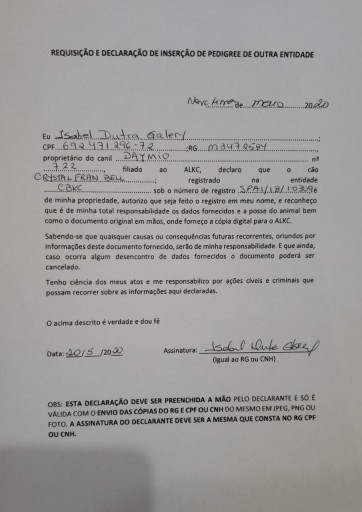 REQUISIÇÃO E DECLARAÇÃO DE INSERÇÃO DE PEDIGREE DE OUTRA ENTIDADE
de maio 2020
Eu Isabel Dutra Galery
CPF 692 471 296-72 ;RG M3472584
proprietário do canil DAYMIO nº
722, filiado ao ALKC, declaro que o cão
CRYSTAL FRAN BELL registrado na entidade
CBKC sob o número de registro SPA1/18/10309 é
de minha propriedade, autorizo que seja feito o registro em meu nome, e reconheço
que é de minha total responsabilidade os dados fornecidos e a posse do animal bem
como o documento original em mãos, onde forneço a cópia digital para o ALKC.
Sabendo-se que quaisquer causas ou consequências futuras recorrentes, oriundos por
informações deste documento fornecido, serão de minha responsabilidade. E que ainda,
caso ocorra algum desencontro de dados fornecidos o documento poderá ser
cancelado.
Tenho ciência dos meus atos e me responsabilizo por ações cíveis e criminais que
possam recorrer as informações aqui declaradas.
O acima descrito é verdade e dou fé
Data: 20/5/2020 Assinatura: Isabel Dutra Galery
(Igual ao RG ou CNH)
OBS: ESTA DECLARAÇÃO DEVE SER PREENCHIDA A MÃO PELO DECLARANTE E SÓ É
VÁLIDA COM O ENVIO DAS CÓPIAS DO RG E CPF OU CNH DO MESMO EM JPEG, PNG OU
FOTO. A ASSINATURA DO DECLARANTE DEVE SER A MESMA QUE CONSTA NO RG CPF
OU CNH.